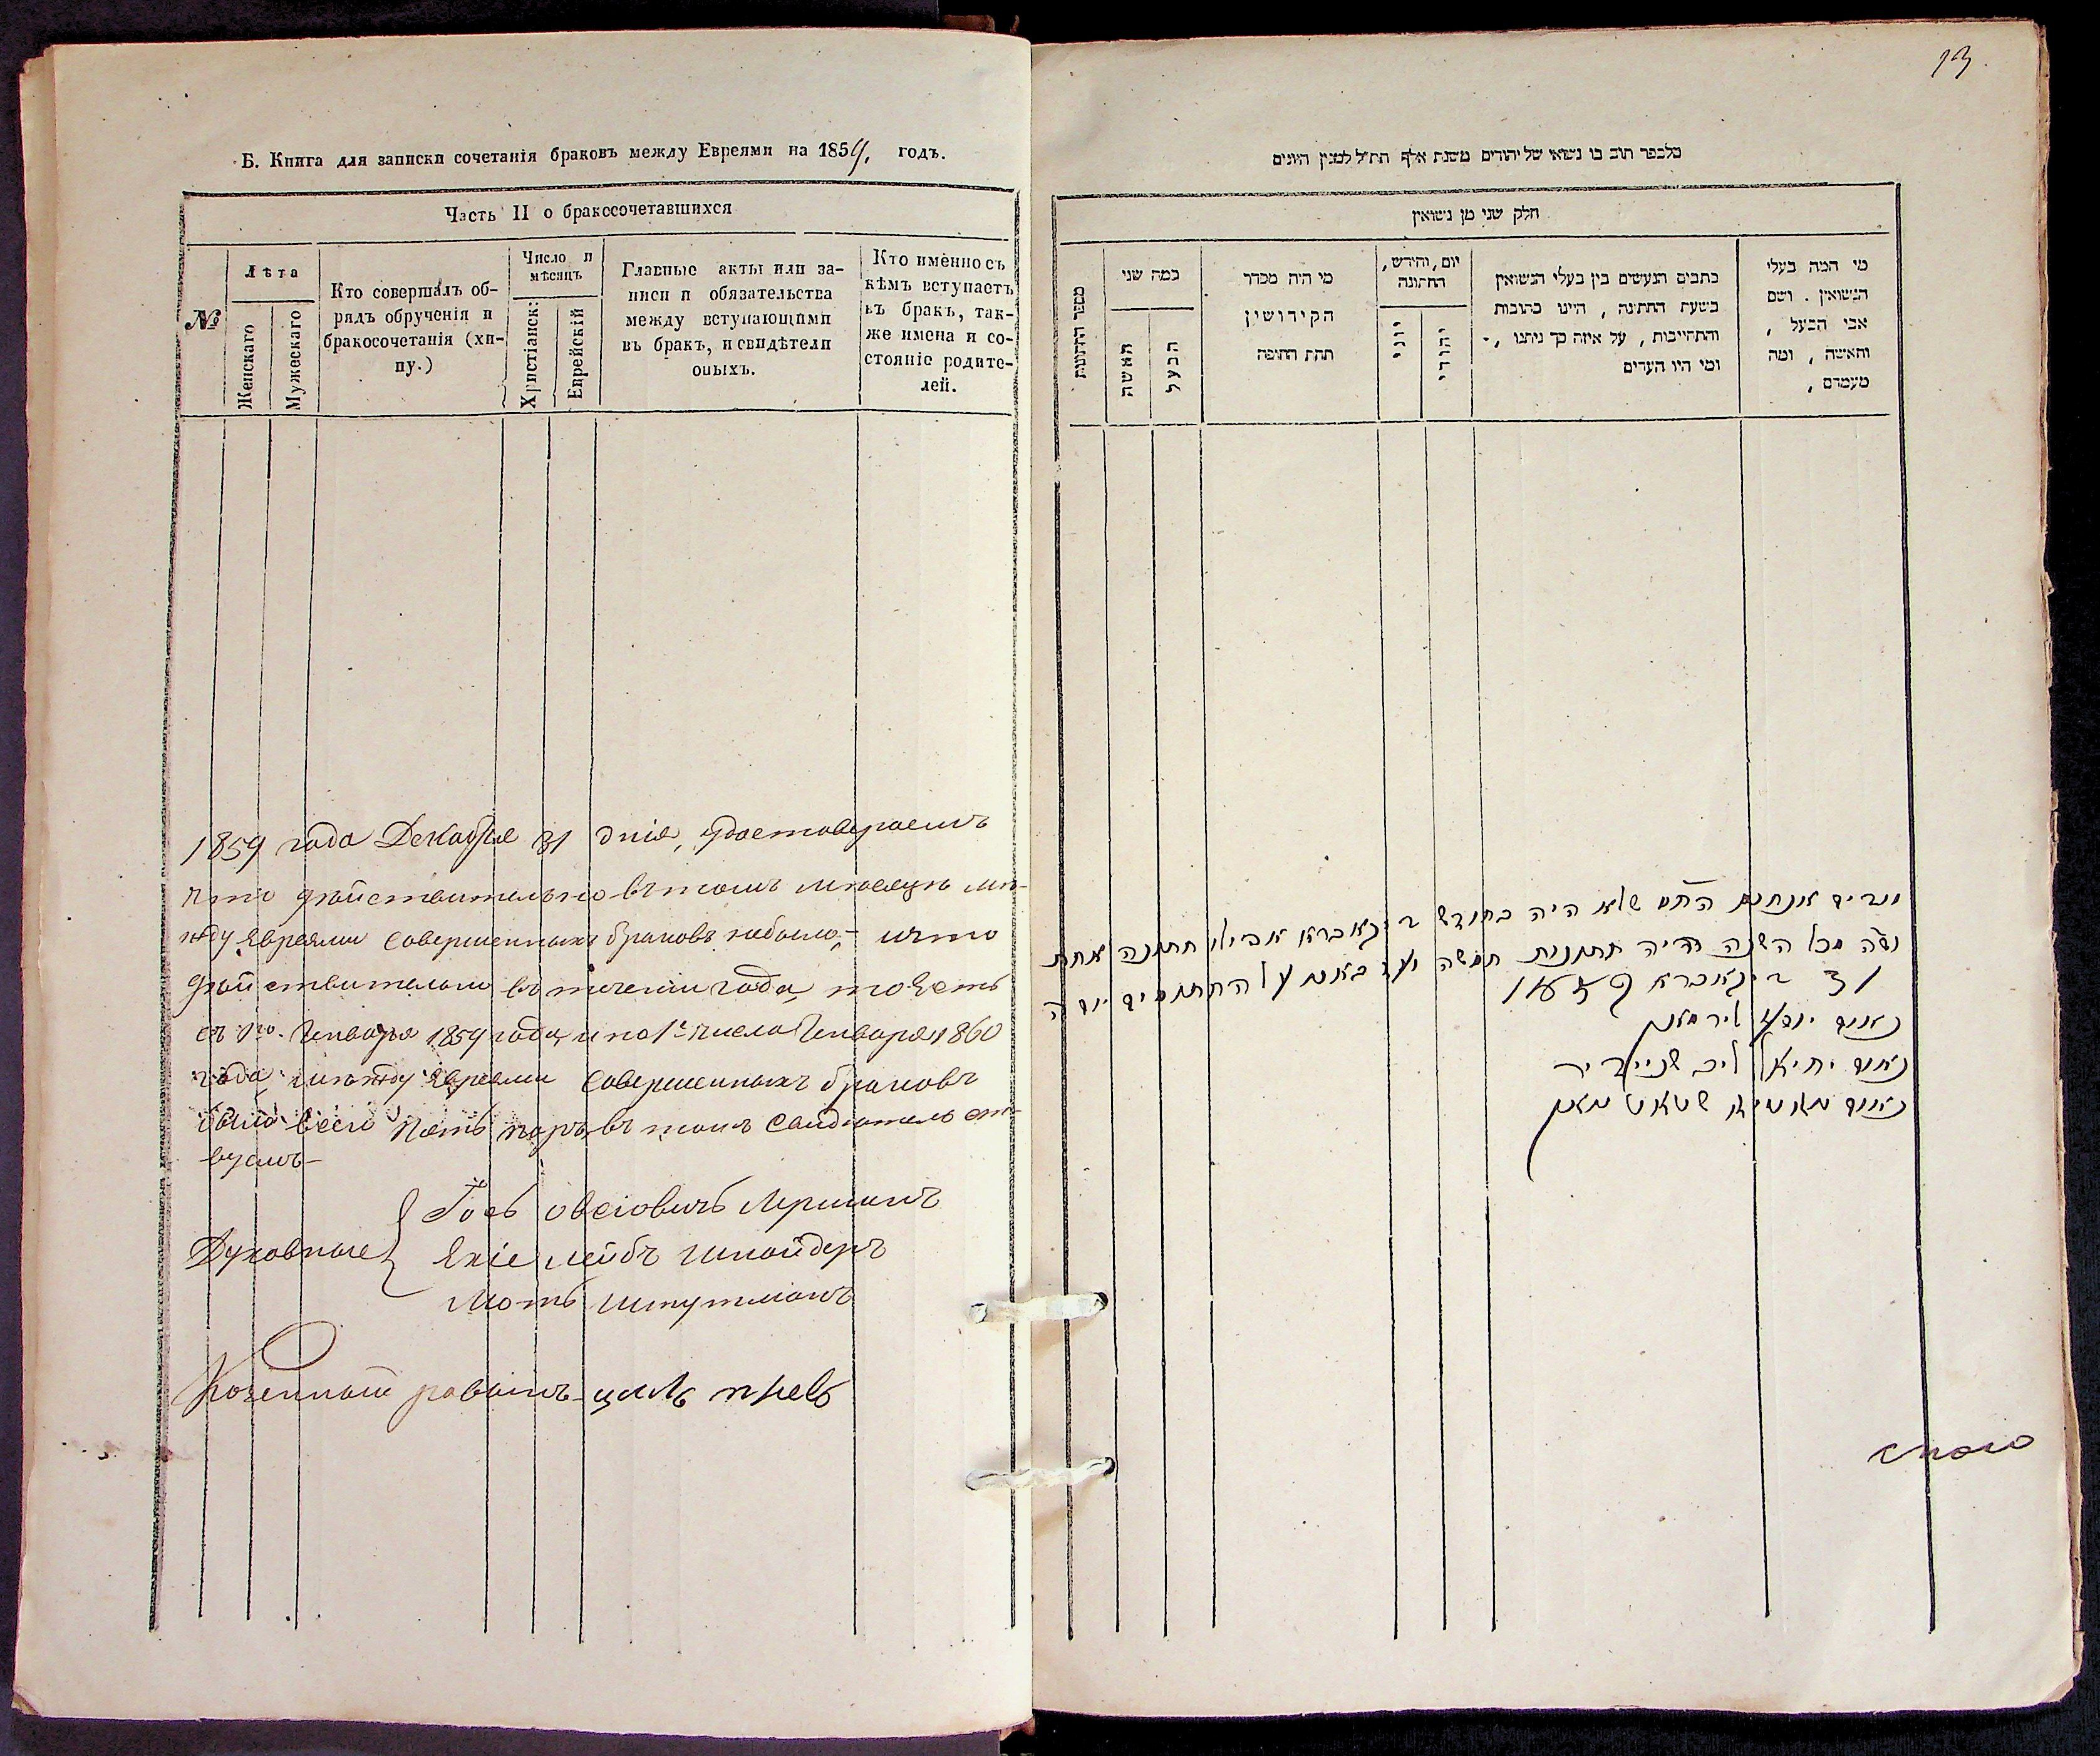 Б. Книга для записки сочетанія браковъ между Евреями на 1859, годъ.
Часть II о бракосочетавшихся
№
Лѣта
Женскаго
Мужескаго
Кто совершалъ об-
рядъ обрученія и
бракосочетанія (хи-
пу.)
Число и
мѣсяцъ
Христіанск:
Еврейскій
Главные акты или за-
писи и обязательства
между вступающими
въ бракъ, и свидѣтели
оныхъ.
Кто именно съ
кѣмъ вступаетъ
въ бракъ, так-
же имена и со-
стояніе родите-
лей.
1859 года Декабря 31 дня, удостоверяемъ
что действительно въ томъ месяце ме-
жду Евреями совершенныхъ браковъ небыло, - и что
въ течении года, то Есть
съ 1го. Января 1859 года, и по 1е число Января 1860
года, между Евреями совершенныхъ браковъ
было всего пять паръ, въ томъ свидетельст-
вуемъ -
Духовные
Іось Овсіовичъ Лерманъ
Лейбъ Шнайдеръ
Моть Штутманъ
Казенный равинъ
13
חלק שני מן נשואין
מספר החתונות
כמה שני
האשה
הבעל
מי היה מסדר
הקידושין
תחת החופה
יום, וחודש,
החתונה
יוני
יהודי
כתבים הנעשים בין בעלי הנשואין
בשעת החתונה, היינו כתובות
והתחייבות, על איזה סך ניתנו,
ומי היו העדים
מי המה בעלי
הנשואין. ושם
אבי הבעל,
והאשה, ומה
מעמדם,
אנחנו שלא היה בחודש דיקאברא אפילו חתונה אחת
מכל השנה היה חתונות חמשה
31 דיקאברא 1859
נאום לירמאן
נאום יחיאל ליב שניידיר
נאום שטאטמאן